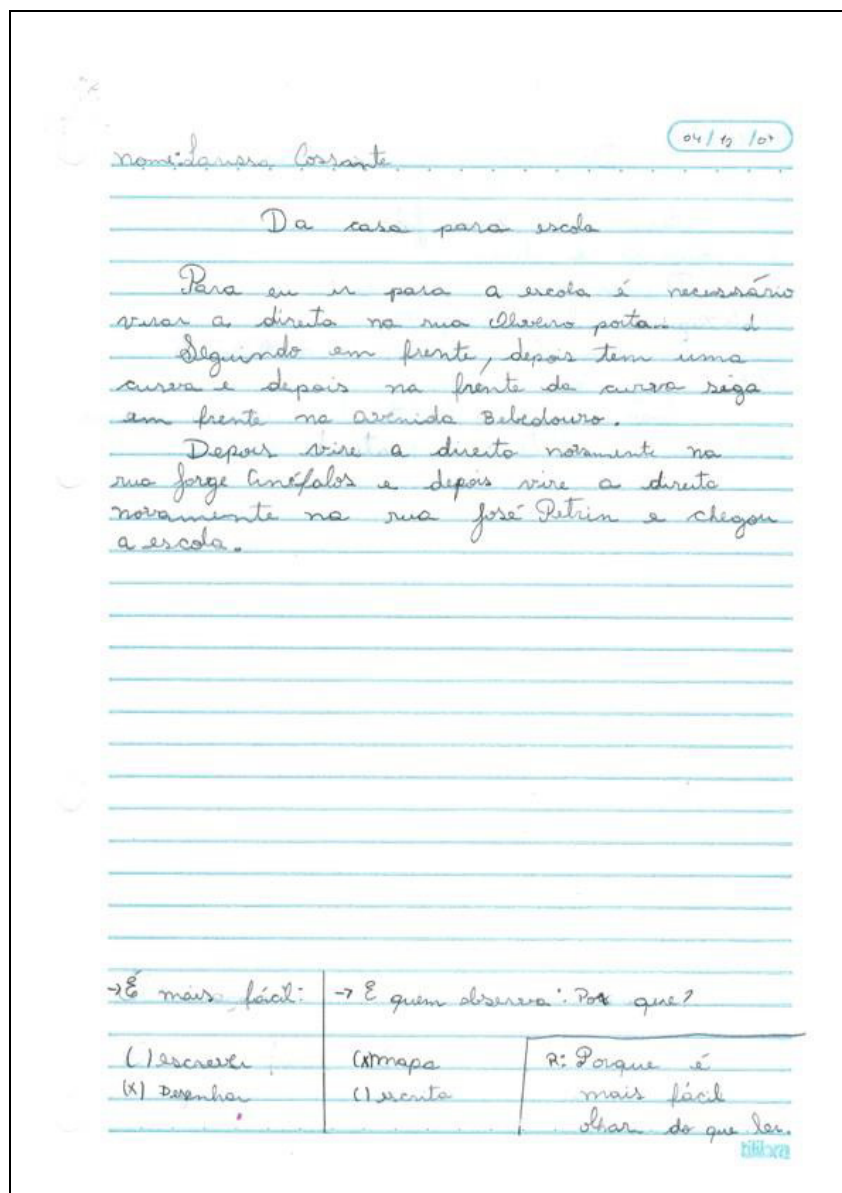 04/12/07
Nome: Larissa Cossante
Da casa para escola
Para eu ir para a escola é necessário
virar a direita na rua Oliveiro porta
Seguindo em frente, depois tem uma
curva e depois na frente da curva siga
em frente na avenida Bebedouro.
Depois vire a direita novamente na
rua Jorge e depois vire a direita
novamente na rua José Petrin e chegou
a escola.
→É mais fácil: → E quem observa: Por que?
( ) escrever (x) mapa R: Porque é
(x) Desenhar ( ) escrita mais fácil
olhar do que ler.
tilibra